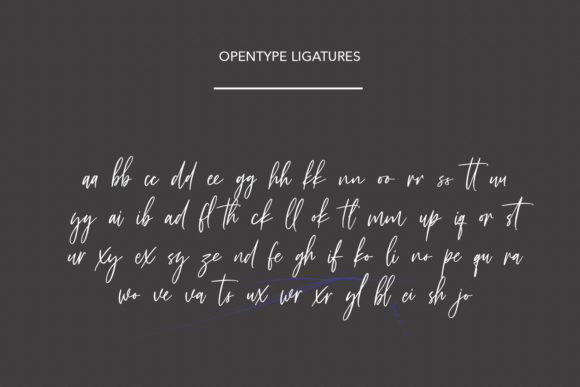 OPENTYPE LIGATURES
aa bb cc dd ee gg hh kk nn oo rr ss tt uu
yy ai ib ad fl th ck ll ok tt mm up iq or st
ur xy ex sy ze nd fe gh if ko li no pe qu ra
wo ve va ts ux wr xr yl bl ei sh jo